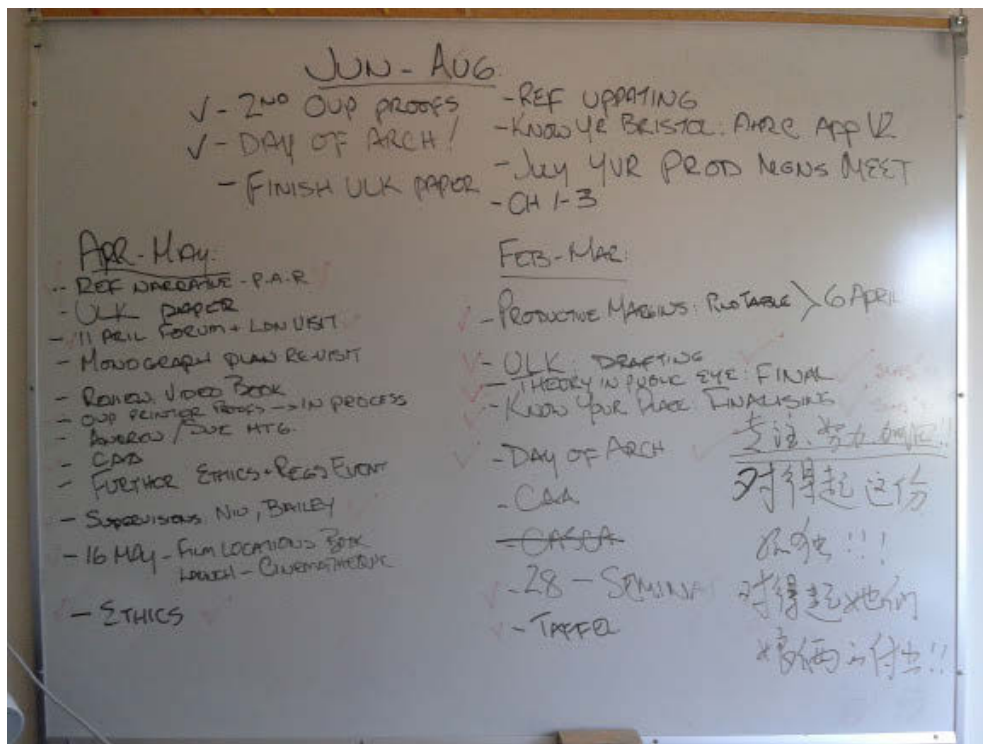 JUN - AUG.
✓ - 2ND OUP PROOFS
✓ - DAY OF ARCH!
- FINISH ULK PAPER
- REF UPDATING
- KNOW YR BRISTOL: AHRC APP V2
- July YVR PROD MGNS MEET
- CH 1-3
APR - MAY:
- REF NARRATIVE - P.A.R
- ULK PAPER
- 11 APRIL FORUM + LDN VISIT
- MONOGRAPH PLAN REVISIT
- REVIEW VIDEO BOOK
- OUP PRINTER PROOFS → IN PROCESS
- ANDREW / SUE MTG.
- CAA
- FURTHER ETHICS + REGS EVENT
- SUPERVISIONS: NIU, BAILEY
- 16 MAY - FILM LOCATIONS BOOK
LAUNCH - CINEMATHEQUE
- ETHICS
FEB - MAR:
- PRODUCTIVE MARGINS: > 6 APRIL
- ULK: DRAFTING
- THEORY IN PUBLIC EYE: FINAL
- KNOW YOUR PLACE FINALISING
- DAY OF ARCH
- CAA
- CASCA
- 28 - SEMINAR
专注、努力
对得起这份
孤独!!!
对得起她们
娘俩的付出!!